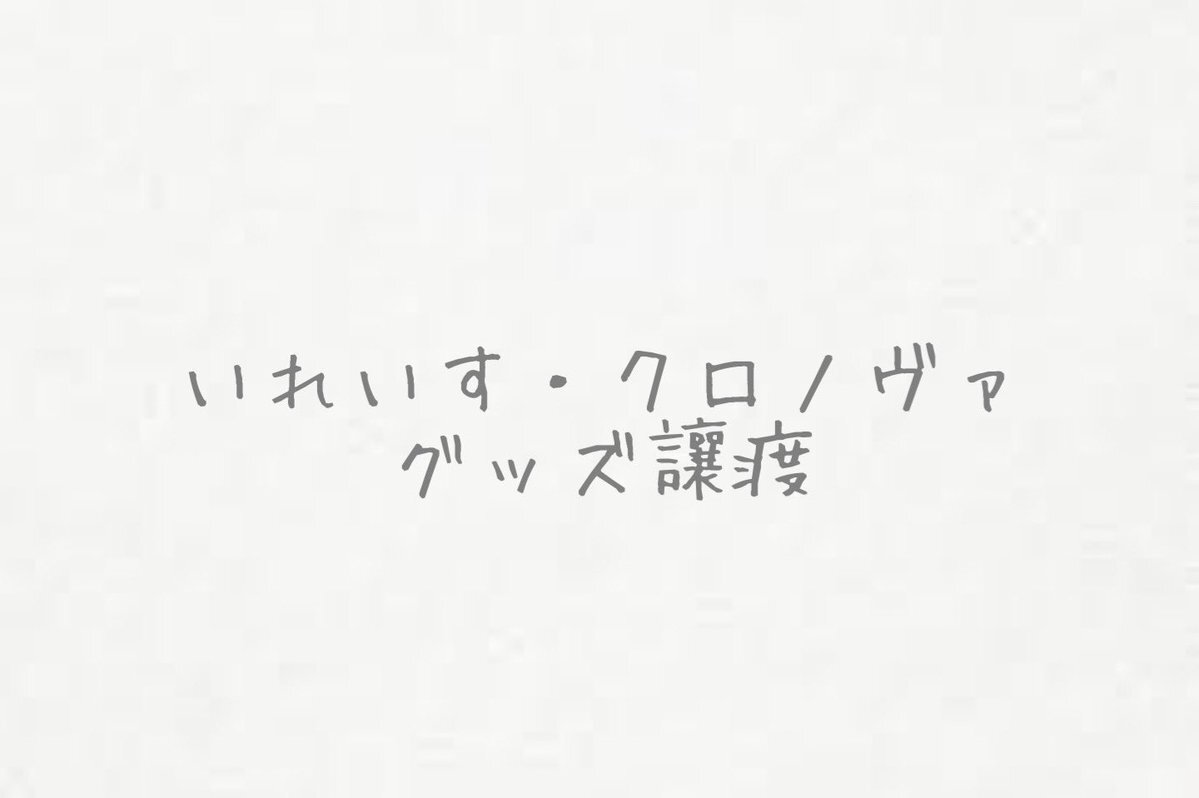 いれいす・クロノヴァ
グッズ譲渡